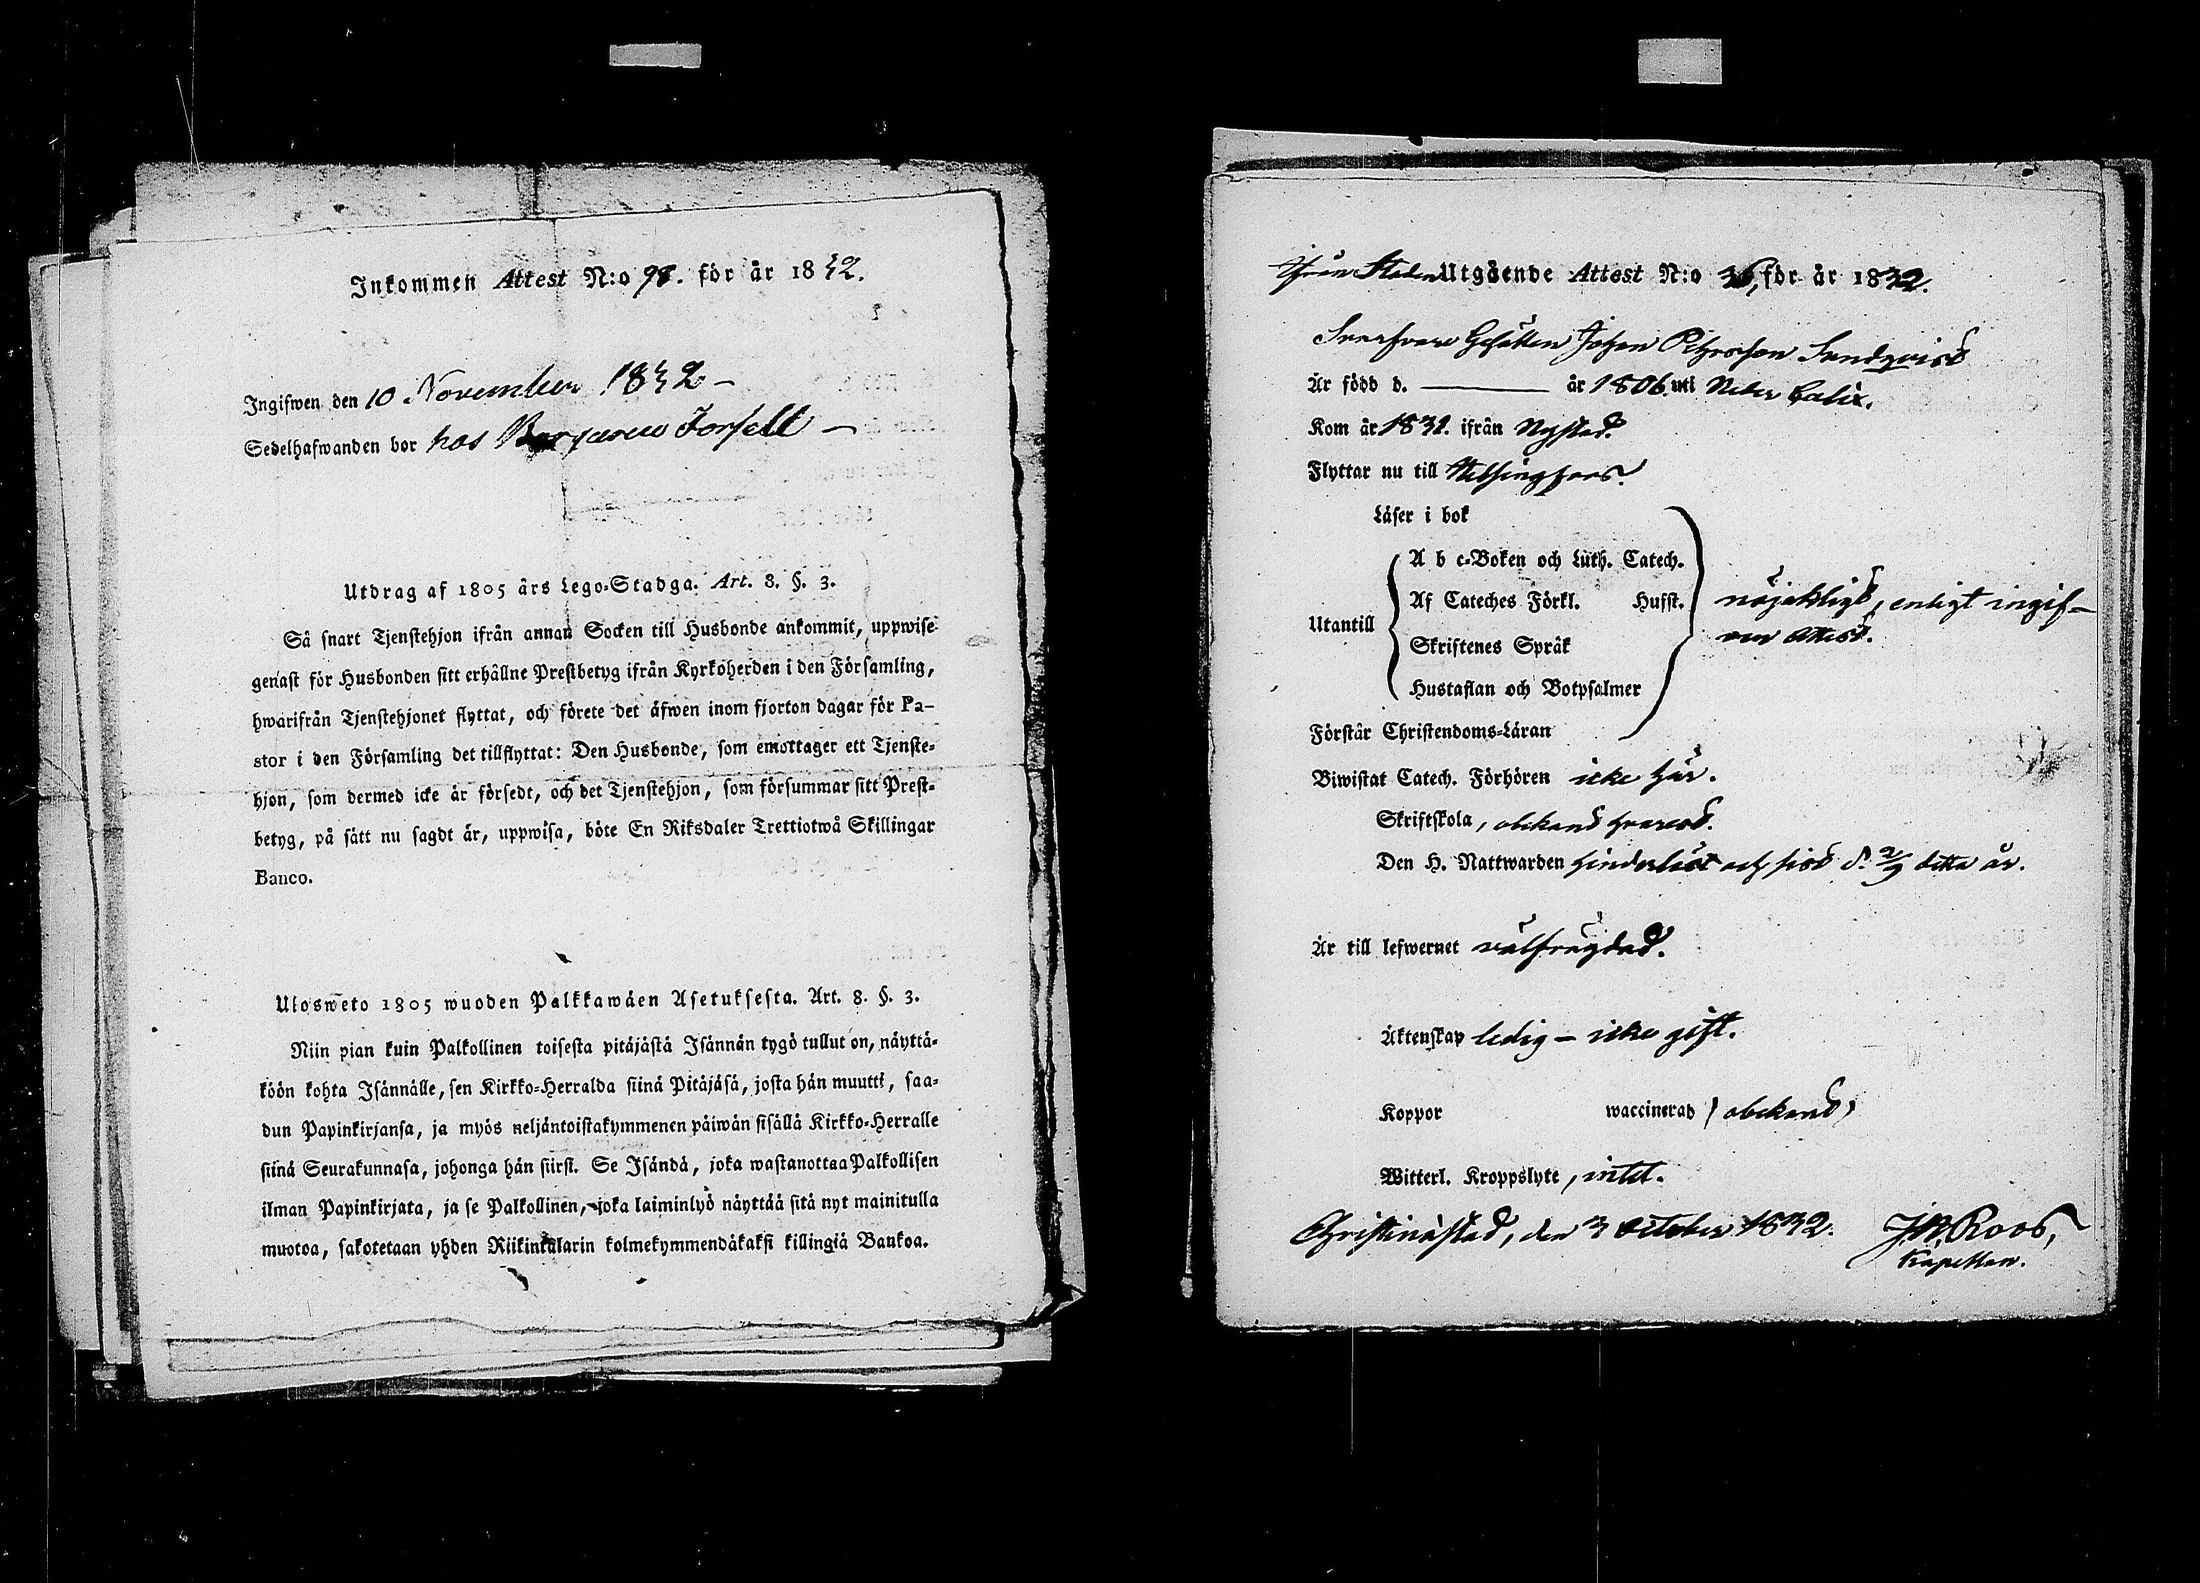 Inkommen Attest N:o 98. för år 1832.
Ingifwen den 10 November 1832 –
Sedelhafwanden bor hos Borgaren Forsell –
Utdrag af 1805 års Lego-Stadga. Art. 8. §. 3.
Så snart Tjenstehjon ifrån annan Socken till Husbonde ankommit, uppwise
genast för Husbonden sitt erhållne Prestbetyg ifrån Kyrkoherden i den Församling,
hwarifrån Tjenstehjonet flyttat, och förete det äfwen inom fjorton dagar för Pa-
stor i den Församling det tillflyttat: Den Husbonde, som emottager ett Tjenste-
hjon, som dermed icke är försedt, och det Tjenstehjon, som försummar sitt Prest-
betyg, på sätt nu sagdt är, uppwisa, böte En Riksdaler Trettiotwå Skillingar
Banco.
Ulosweto 1805 wuoden Palkkawäen Asetuksesta. Art. 8. §. 3.
Niin pian kuin Palkollinen toisesta pitäjästä Isännän tygö tullut on, näyttä-
köön kohta Isännälle, sen Kirkko-Herralda siinä Pitäjäsä, josta hän muutti, saa-
dun Papinkirjansa, ja myös neljäntoistakymmenen päiwän sisällä Kirkko-Herralle
siinä Seurakunnasa, johonga hän siirsi. Se Isändä, joka wastanottaa Palkollisen
ilman Papinkirjata, ja se Palkollinen, joka laiminlyö näyttää sitä nyt mainitulla
muotoa, sakotetaan yhden Riikintalarin kolmekymmendäkaksi killingiä Bankoa.
Ifrån Staden Utgående Attest N:o 36, för år 1832.
Swarfvare Gesällen Johan Petersson Sandqvist
Är född d. ——— år 1806. uti Neder Calix.
Kom år 1831. ifrån Nystad.
Flyttar nu till Helsingfors.
Läser i bok
A b c-Boken och Luth. Catech.
Af Cateches Förkl. Hufst.
nöjaktligt, enligt ingif-
ven Attest.
Utantill
Skriftenes Språk
Hustaflan och Botpsalmer
Förstår Christendoms-Läran
Biwistat Catech. Förhören icke här.
Skriftskola, obekant hvarest.
Den H. Nattwarden hinderlöst och sist d. 2/9 detta år.
Är till lefwernet välfrägdad.
Äktenskap ledig – icke gift.
Koppor waccinerad obekant
Witterl. Kroppslyte, intet.
Christinæstad, den 3 October 1832. J.W. Roos,
Kapellan.